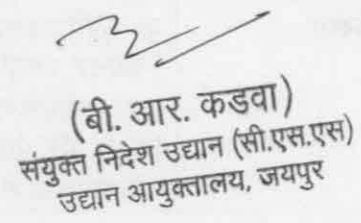 (बी. आर. कडवा)
संयुक्त निदेश उद्यान (सी.एस.एस)
उद्यान आयुक्तालय, जयपुर